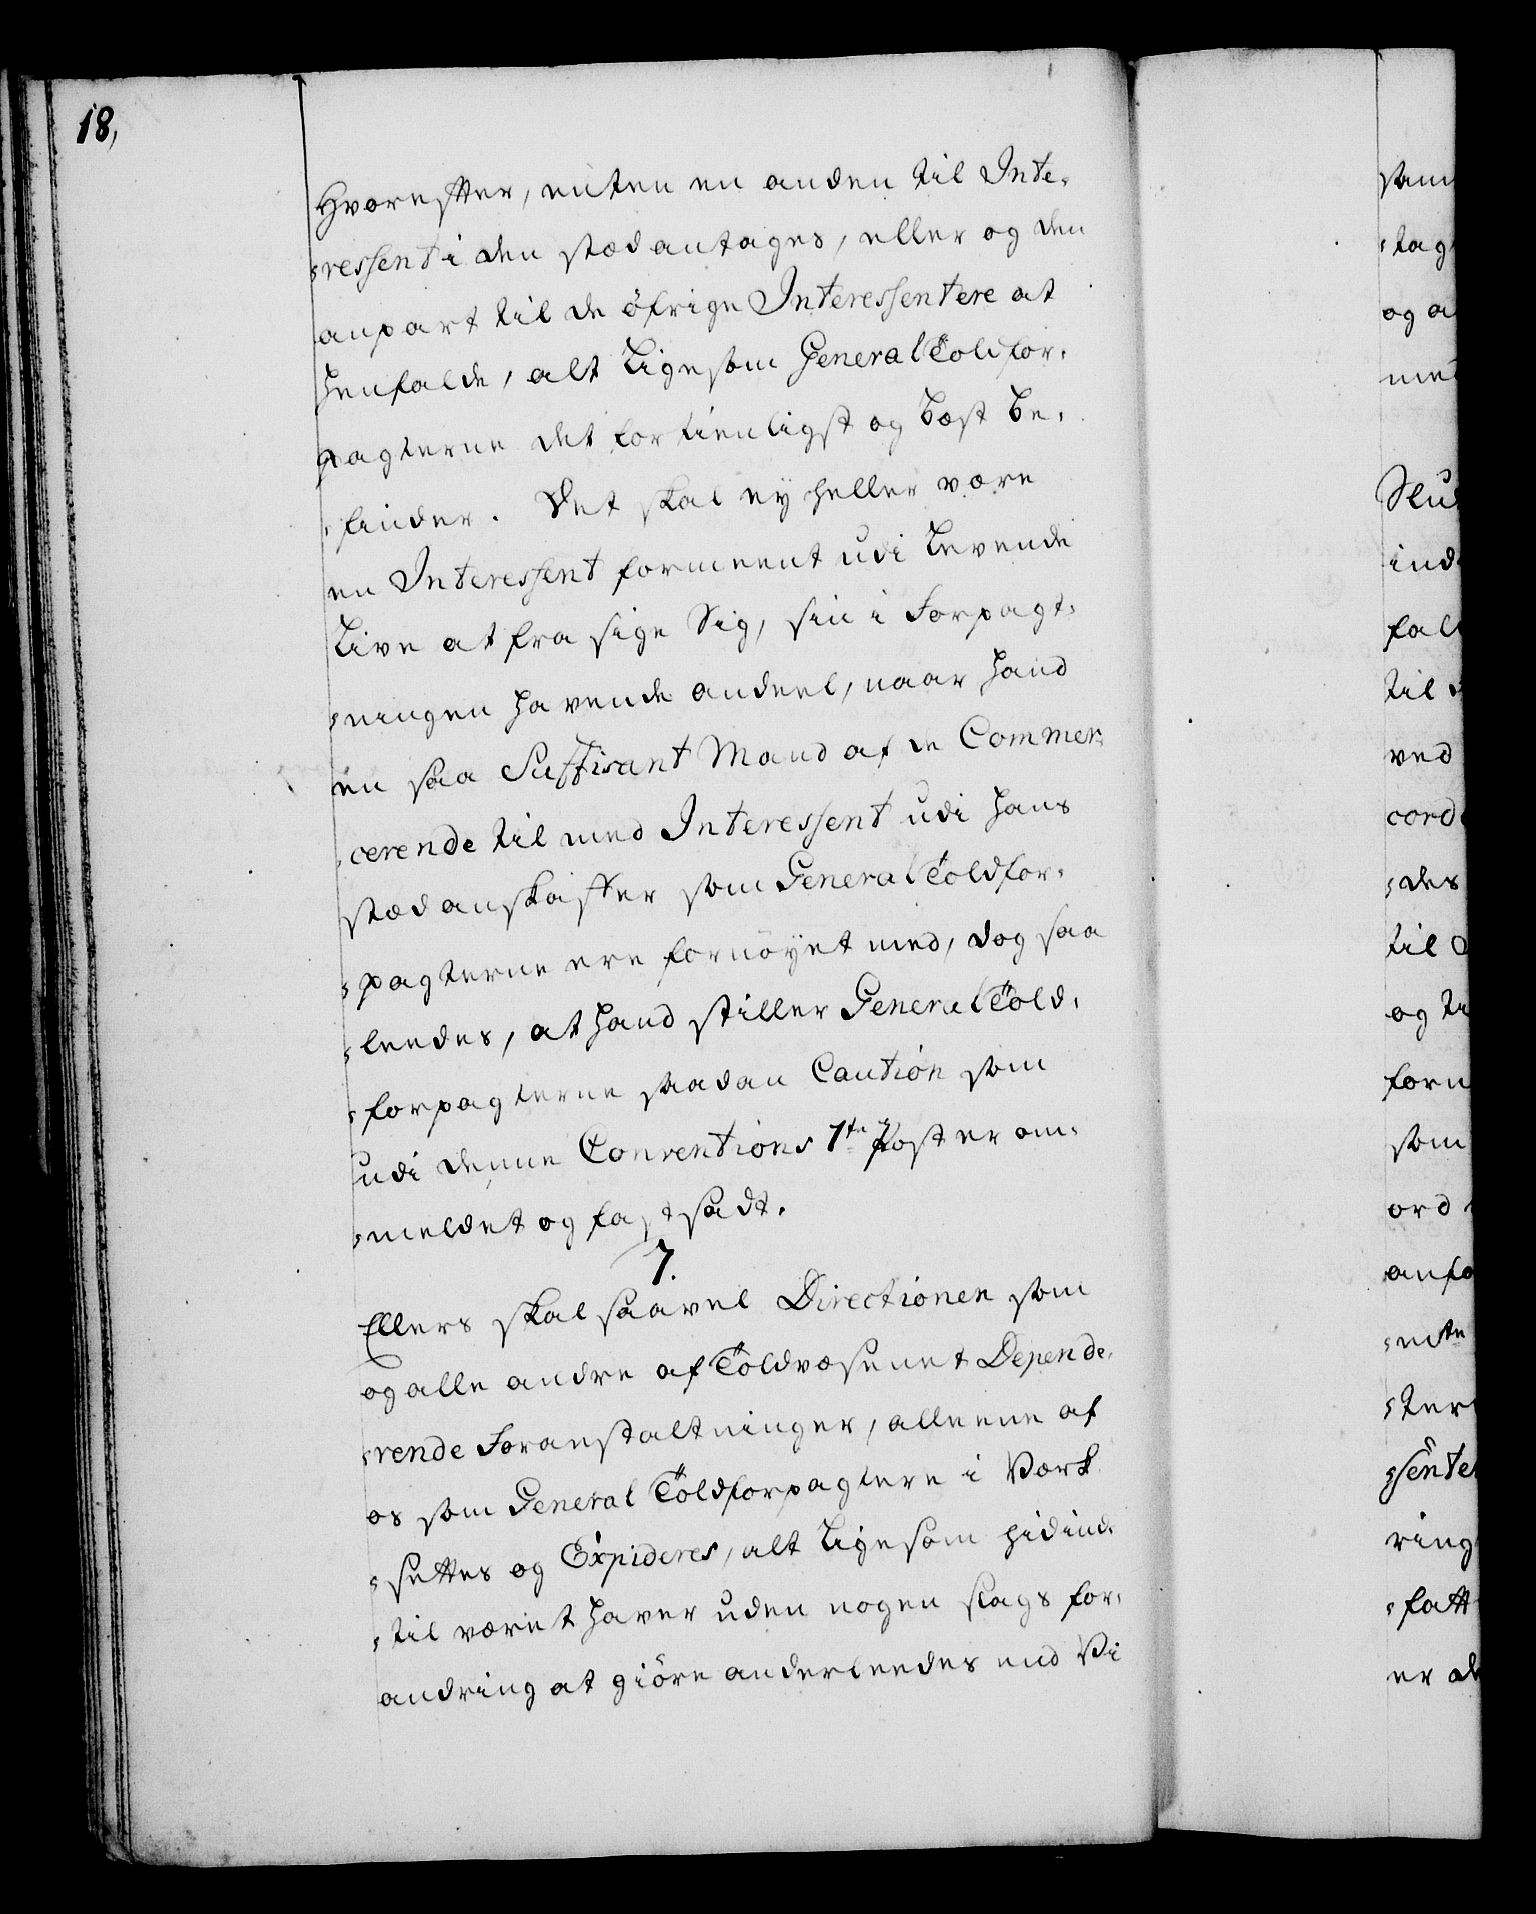 18,
Hvorefter, enten en anden til Inte,
,ressent i den stæd antages, eller og den
anpart til de öfrige Interessentere at
henfalde, alt ligesom General Toldfor,
pagterne det fortienligst og best be,
,finder. Det skal ey heller være
en Interessent formeent udi levende
Live at fra sige Sig, sin i Forpagt,
,ningen havende andeel, naar hand
en saa Suffisant Mand af de Commer,
,cerende til med Interessent udi hans
stæd anskaffer som General Toldfor,
,pagterne ere fornöyet med, dog saa
,leedes, at hand stiller General Told,
,forpagterne saadan Caution som
udi denne Conventions 1te Post er om,
,meldet og fastsadt.
7.
Ellers skal saavel Directionen som
og alle andre af Toldvæsenet Depende,
,rende Foranstaltninger, alleene af
os som General Toldforpagtere i Værk
,settes og Expideres, alt ligesom hidind,
,til været haver uden nogen slags for,
andring at giöre anderleedes end Vi
sam
,tag
og a
med
Slu
ind
fal
til
ved
cord
,des
til
og ti
forn
som
ord
anfo
,ente
,ter
,sente
ring
,fatt
er de